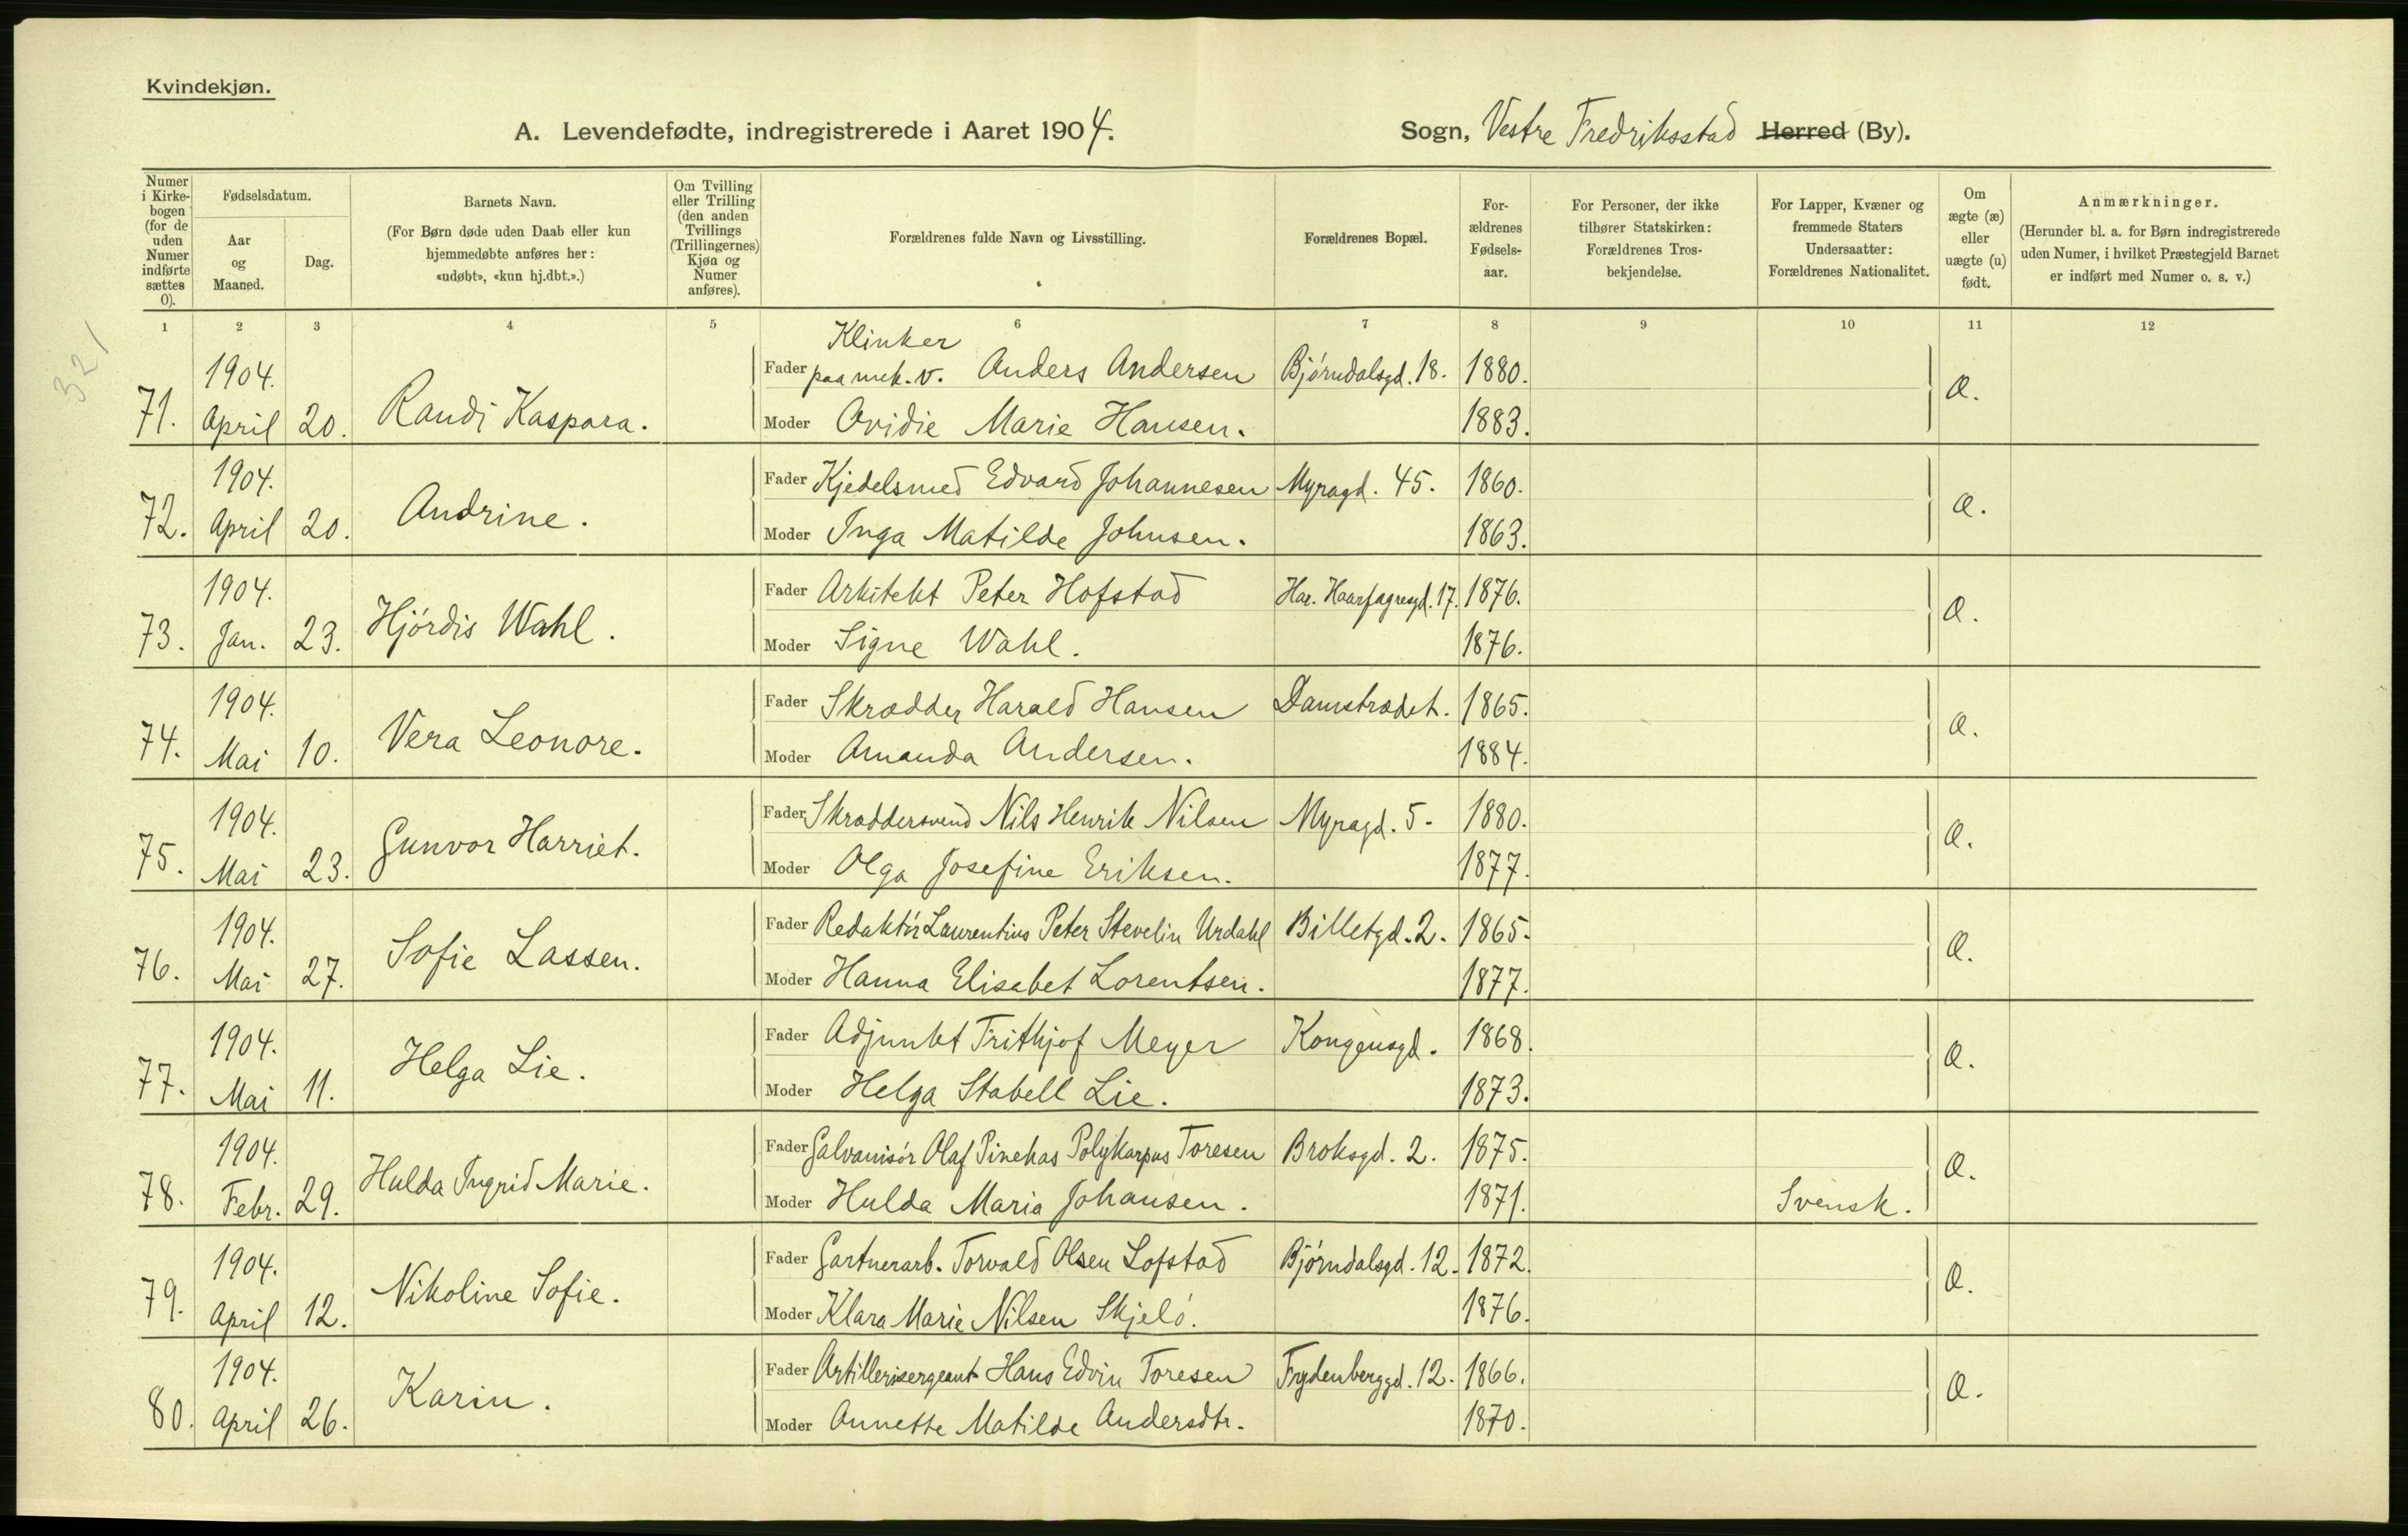 Kvindekjøn.
A. Levendefødte, indregistrerede i Aaret 1904.
Sogn, Vestre Fredriksstad Herred (By).
Numer i Kirkebogen (for de uden Numer indførte sættes 0).
Fødselsdatum.
Aar og Maaned.
Dag.
Barnets Navn.
(For Børn døde uden Daab eller kun hjemmedøbte anføres her: «udøbt», «kun hj.dbt.».)
Om Tvilling eller Trilling (den anden Tvillings (Trillingernes) Kjøn og Numer anføres).
Forældrenes fulde Navn og Livsstilling.
Forældrenes Bopæl.
Forældrenes Fødselsaar.
For Personer, der ikke tilhører Statskirken: Forældrenes Trosbekjendelse.
For Lapper, Kvæner og fremmede Staters Undersaatter: Forældrenes Nationalitet.
Om ægte (æ) eller uægte (u) født.
Anmærkninger.
(Herunder bl. a. for Børn indregistrerede uden Numer, i hvilket Præstegjeld Barnet er indført med Numer o. s. v.)
1 2 3 4 5 6 7 8 9 10 11 12
321
71. 1904. April 20. Randi Kaspara.
Fader Klinker paa mek. v. Anders Andersen Bjørndalsgd. 18. 1880. æ.
Moder Ovidie Marie Hansen. 1883.
72. 1904. April 20. Andrine.
Fader Kjedelsmed Edvard Johannesen Myragd. 45. 1860. æ.
Moder Inga Matilde Johnsen. 1863.
73. 1904. Jan. 23. Hjørdis Wahl.
Fader Arkitekt Peter Hofstad Har. Haarfagresgd. 17. 1876. æ.
Moder Signe Wahl. 1876.
74. 1904. Mai 10. Vera Leonore.
Fader Skrædder Harald Hansen Damstrædet. 1865. æ.
Moder Amanda Andersen. 1884.
75. 1904. Mai 23. Gunvor Harriet.
Fader Skræddersvend Nils Henrik Nilsen Myragd. 5. 1880. æ.
Moder Olga Josefine Eriksen. 1877.
76. 1904. Mai 27. Sofie Lassen.
Fader Redaktør Laurentius Peter Stevelin Urdahl Billetgd. 2. 1865. æ.
Moder Hanna Elisabet Lorentsen. 1877.
77. 1904. Mai 11. Helga Lie.
Fader Adjunkt Frithjof Meyer Kongensgd. 1868. æ.
Moder Helga Stabell Lie. 1873.
78. 1904. Febr. 29. Hulda Ingrid Marie.
Fader Galvanisør Olaf Pinehas Polykarpus Toresen Broksgd. 2. 1875. æ.
Moder Hulda Maria Johansen. 1871. Svensk.
79. 1904. April 12. Nikoline Sofie.
Fader Gartnerarb. Torvald Olsen Lofstad Bjørndalsgd. 12. 1872. æ.
Moder Klara Marie Nilsen Skjelø. 1876.
80. 1904. April 26. Karin.
Fader Artillerisergeant Hans Edvin Toresen Frydenberggd. 12. 1866. æ.
Moder Annette Matilde Andersdtr. 1870.